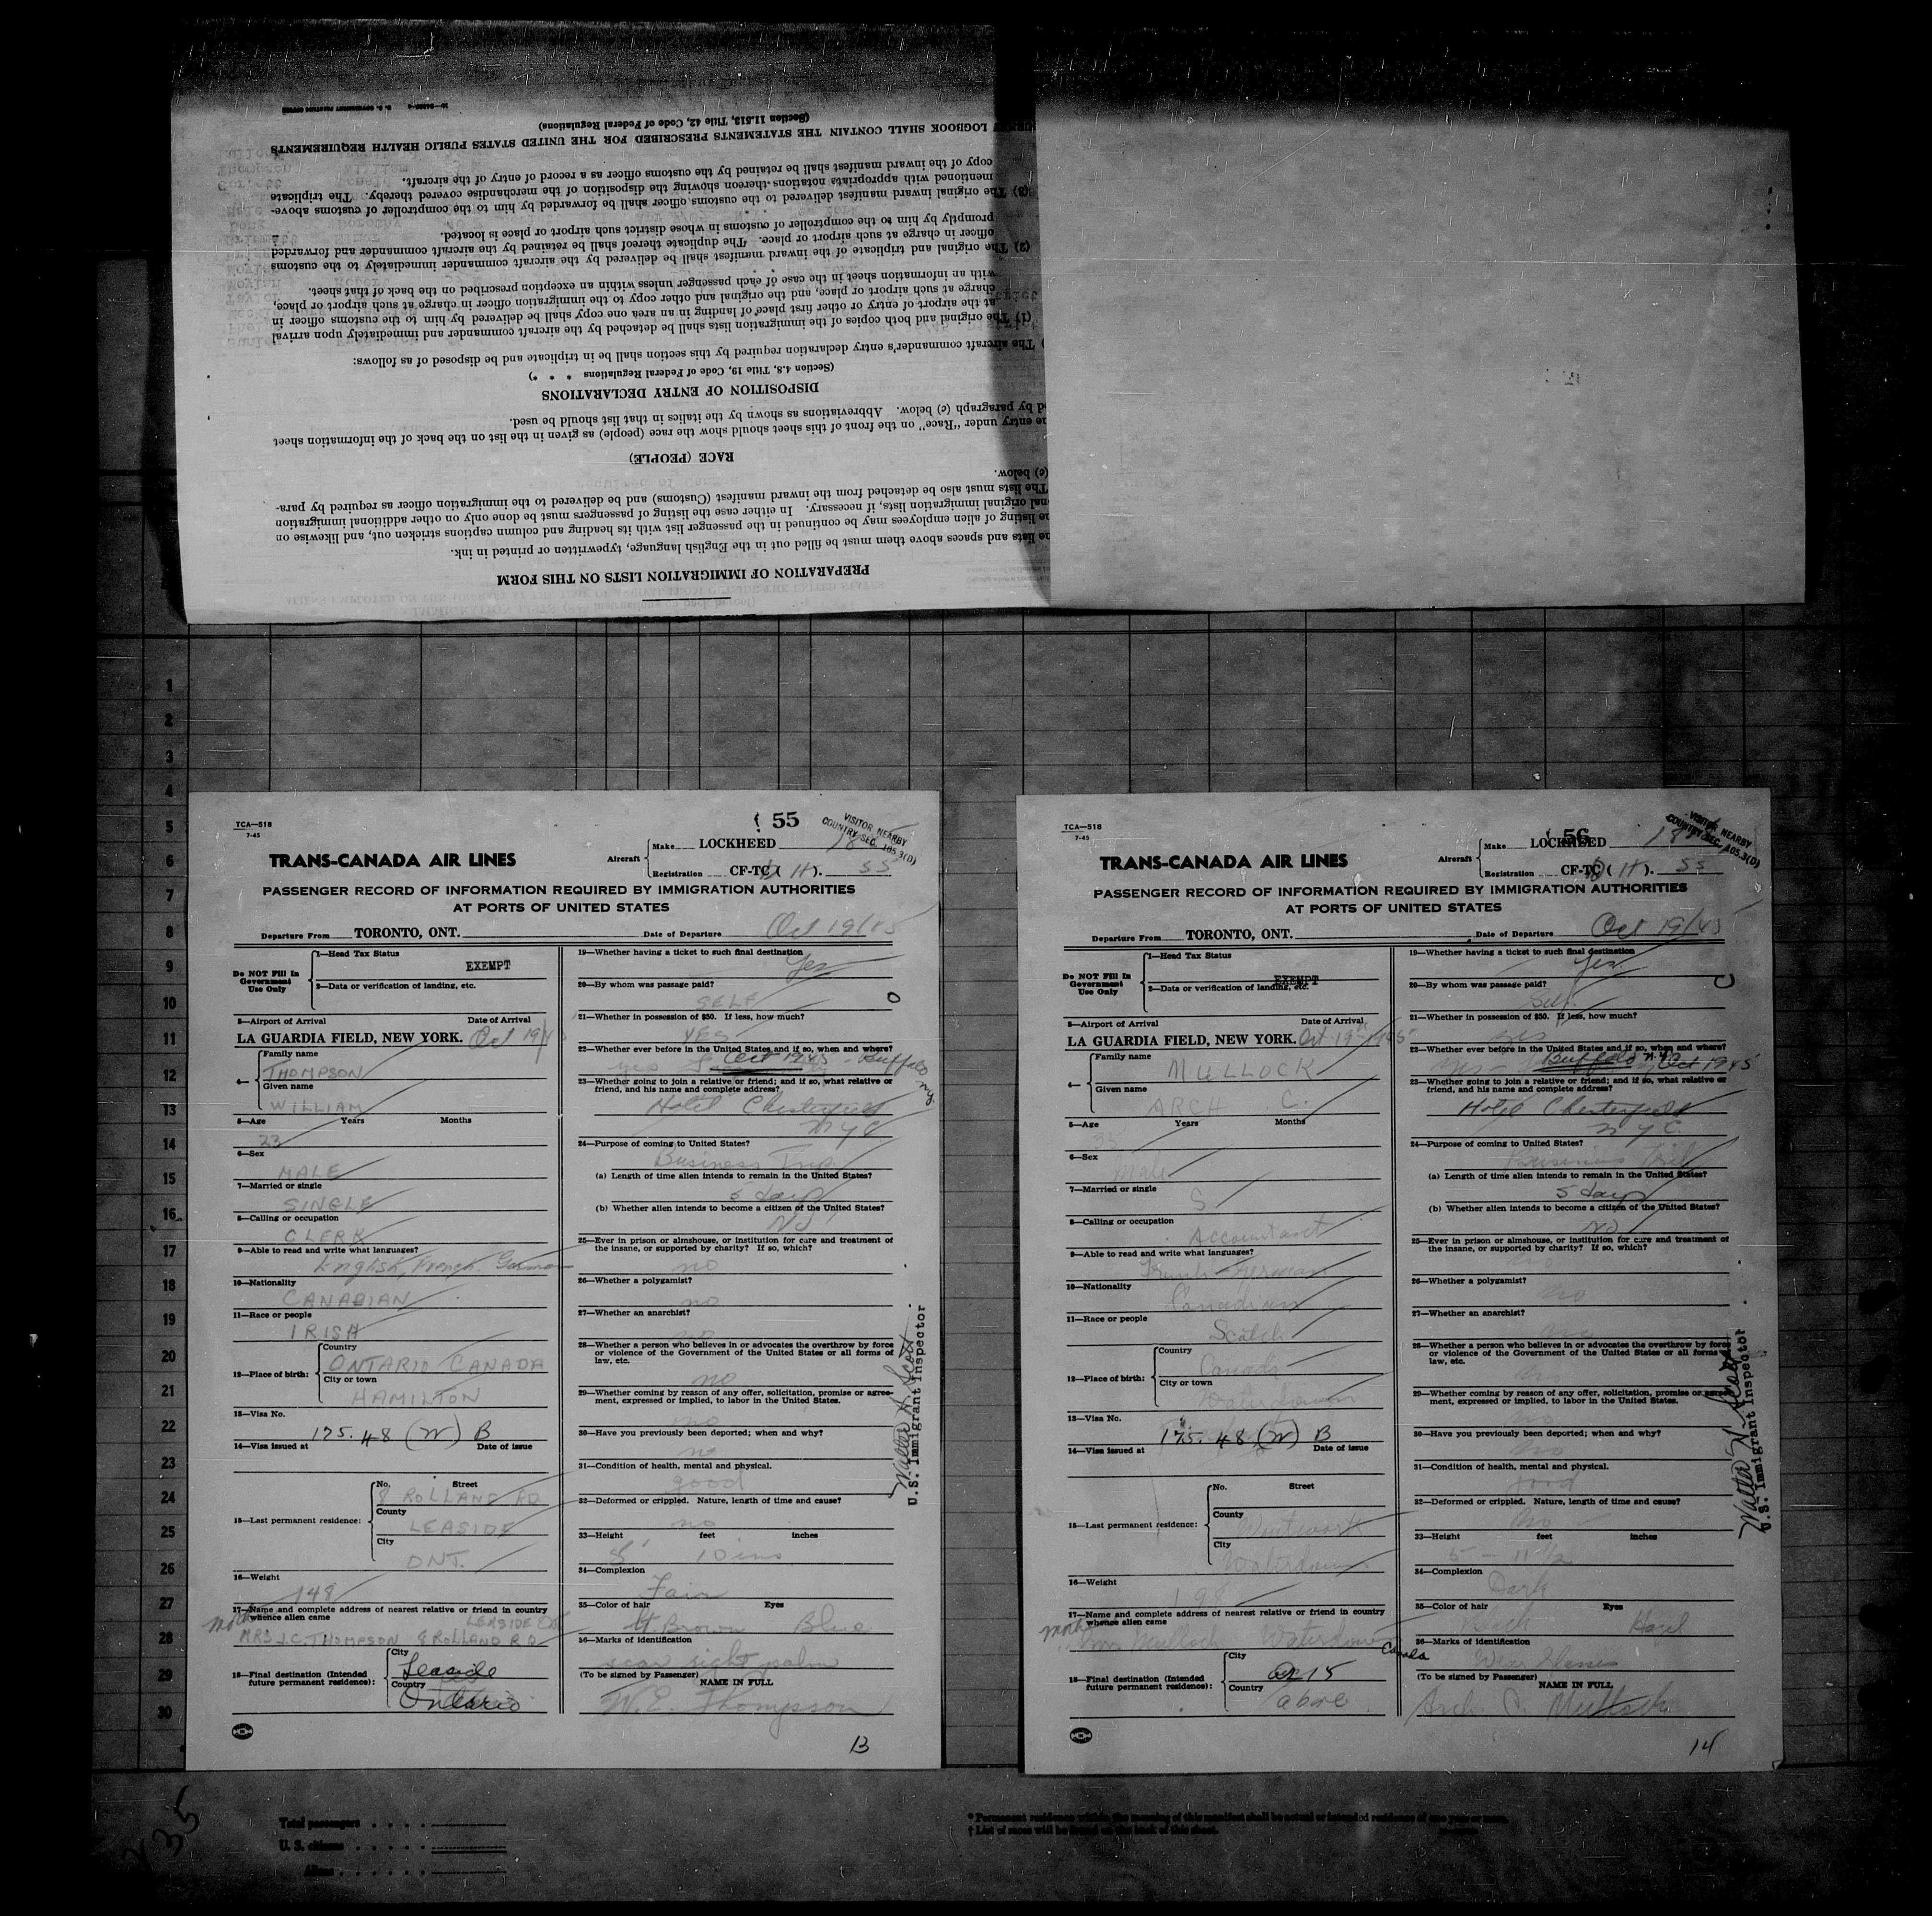 PREPARATION OF IMMIGRATION LISTS ON THIS FORM
he lists and spaces above them must be filled out in the English language, typewritten or printed in ink.
he listing of alien employees may be continued in the passenger list with its heading and column captions stricken out, and likewise on
nal original immigration lists, if necessary. In either case the listing of passengers must be done only on other additional immigration
The lists must also be detached from the inward manifest (Customs) and be delivered to the immigration officer as required by para-
(c) below.
RACE (PEOPLE)
he entry under "Race" on the front of this sheet should show the race (people) as given in the list on the back of the information sheet
d by paragraph (c) below. Abbreviations as shown by the italics in that list should be used.
DISPOSITION OF ENTRY DECLARATIONS
(Section 4.8, Title 19, Code of Federal Regulations * * *)
) The aircraft commander's entry declaration required by this section shall be in triplicate and be disposed of as follows:
(1) The original and both copies of the immigration lists shall be detached by the aircraft commander and immediately upon arrival
at the airport of entry or other first place of landing in an area one copy shall be delivered by him to the customs officer in
charge at such airport or place, and the original and other copy to the immigration officer in charge at such airport or place,
with an information sheet in the case of each passenger unless within an exception prescribed on the back of that sheet.
(2) The original and triplicate of the inward manifest shall be delivered by the aircraft commander immediately to the customs
officer in charge at such airport or place. The duplicate thereof shall be retained by the aircraft commander and forwarded
promptly by him to the comptroller of customs in whose district such airport or place is located.
(3) The original inward manifest delivered to the customs officer shall be forwarded by him to the comptroller of customs above-
mentioned with appropriate notations thereon showing the disposition of the merchandise covered thereby. The triplicate
copy of the inward manifest shall be retained by the customs officer as a record of entry of the aircraft.
LOGBOOK SHALL CONTAIN THE STATEMENTS PRESCRIBED FOR THE UNITED STATES PUBLIC HEALTH REQUIREMENTS
(Section 11.513, Title 42, Code of Federal Regulations)
U. S. GOVERNMENT PRINTING OFFICE
1
2
3
4
5
6
7
8
9
10
11
12
13
14
15
16
17
18
19
20
21
22
23
24
25
26
27
28
29
30
TCA—518
7-45
55
VISITOR NEARBY
COUNTRY SEC. 105.3(D)
TRANS-CANADA AIR LINES
Aircraft
Make LOCKHEED 18
Registration CF-TC( H ). SS
PASSENGER RECORD OF INFORMATION REQUIRED BY IMMIGRATION AUTHORITIES
AT PORTS OF UNITED STATES
Departure From TORONTO, ONT. Date of Departure Oct 19/45
Do NOT Fill In Government Use Only
1—Head Tax Status EXEMPT
2—Data or verification of landing, etc.
3—Airport of Arrival Date of Arrival
LA GUARDIA FIELD, NEW YORK. Oct 19/45
4— Family name
THOMPSON
Given name
WILLIAM
5—Age Years Months
23
6—Sex
MALE
7—Married or single
SINGLE
8—Calling or occupation
CLERK
9—Able to read and write what languages?
English, French, German
10—Nationality
CANADIAN
11—Race or people
IRISH
12—Place of birth: Country
ONTARIO CANADA
City or town
HAMILTON
13—Visa No.
175.48 (W) B
14—Visa issued at Date of issue
15—Last permanent residence: No. Street
8 ROLLAND RD
County
LEASIDE
City
ONT.
16—Weight
148
17—Name and complete address of nearest relative or friend in country
whence alien came LEASIDE
MRS J.C. THOMPSON 8 ROLLAND RD
18—Final destination (Intended future permanent residence): City
Leaside
Country
Ontario
19—Whether having a ticket to such final destination
Yes
20—By whom was passage paid?
SELF
21—Whether in possession of $50. If less, how much?
YES
22—Whether ever before in the United States and if so, when and where?
yes Oct 1945 - Buffalo N.Y.
23—Whether going to join a relative or friend; and if so, what relative or
friend, and his name and complete address?
Hotel Chesterfield
NYC
24—Purpose of coming to United States?
Business Trip
(a) Length of time alien intends to remain in the United States?
5 days
(b) Whether alien intends to become a citizen of the United States?
No
25—Ever in prison or almshouse, or institution for care and treatment of
the insane, or supported by charity? If so, which?
no
26—Whether a polygamist?
no
27—Whether an anarchist?
no
28—Whether a person who believes in or advocates the overthrow by force
or violence of the Government of the United States or all forms of
law, etc.
no
29—Whether coming by reason of any offer, solicitation, promise or agree-
ment, expressed or implied, to labor in the United States.
no
30—Have you previously been deported; when and why?
no
31—Condition of health, mental and physical.
good
32—Deformed or crippled. Nature, length of time and cause?
no
33—Height feet inches
10 ins
34—Complexion
Fair
35—Color of hair Eyes
lt. Brown Blue
36—Marks of identification
scar right palm
(To be signed by Passenger) NAME IN FULL
W.E. Thompson
Walter N. Scott
U.S. Immigrant Inspector
13
TCA—518
7-45
56
VISITOR NEARBY
COUNTRY SEC. 105.3(D)
TRANS-CANADA AIR LINES
Aircraft
Make LOCKHEED 18
Registration CF-TC( H ). SS
PASSENGER RECORD OF INFORMATION REQUIRED BY IMMIGRATION AUTHORITIES
AT PORTS OF UNITED STATES
Departure From TORONTO, ONT. Date of Departure Oct 19/45
Do NOT Fill In Government Use Only
1—Head Tax Status
EXEMPT
2—Data or verification of landing, etc.
3—Airport of Arrival Date of Arrival
LA GUARDIA FIELD, NEW YORK. Oct 19 1945
4— Family name
MULLOCK
Given name
ARCH C.
5—Age Years Months
6—Sex
Male
7—Married or single
S
8—Calling or occupation
Accountant
9—Able to read and write what languages?
French German
10—Nationality
Canadian
11—Race or people
Scotch
12—Place of birth: Country
Canada
City or town
Waterdown
13—Visa No.
175.48 (W) B
14—Visa issued at Date of issue
15—Last permanent residence: No. Street
County
Wentworth
City
Waterdown
16—Weight
198
17—Name and complete address of nearest relative or friend in country
whence alien came
Mrs Mullock Waterdown Canada
18—Final destination (Intended future permanent residence): City
15
Country
above
19—Whether having a ticket to such final destination
Yes
20—By whom was passage paid?
Self
21—Whether in possession of $50. If less, how much?
yes
22—Whether ever before in the United States and if so, when and where?
yes - Buffalo N.Y. Oct 1945
23—Whether going to join a relative or friend; and if so, what relative or
friend, and his name and complete address?
Hotel Chesterfield
NYC
24—Purpose of coming to United States?
Business Trip
(a) Length of time alien intends to remain in the United States?
5 days
(b) Whether alien intends to become a citizen of the United States?
No
25—Ever in prison or almshouse, or institution for care and treatment of
the insane, or supported by charity? If so, which?
no
26—Whether a polygamist?
no
27—Whether an anarchist?
no
28—Whether a person who believes in or advocates the overthrow by force
or violence of the Government of the United States or all forms of
law, etc.
29—Whether coming by reason of any offer, solicitation, promise or agree-
ment, expressed or implied, to labor in the United States.
30—Have you previously been deported; when and why?
no
31—Condition of health, mental and physical.
good
32—Deformed or crippled. Nature, length of time and cause?
No
33—Height feet inches
5 - 11 1/2
34—Complexion
Dark
35—Color of hair Eyes
Hazel
36—Marks of identification
(To be signed by Passenger) NAME IN FULL
Arch. C. Mullock
Walter N. Scott
U.S. Immigrant Inspector
14
Total passengers
U. S. citizens
Aliens
* Permanent residence within the meaning of this manifest shall be actual or intended residence of one year or more.
† List of races will be found on the back of this sheet.
235